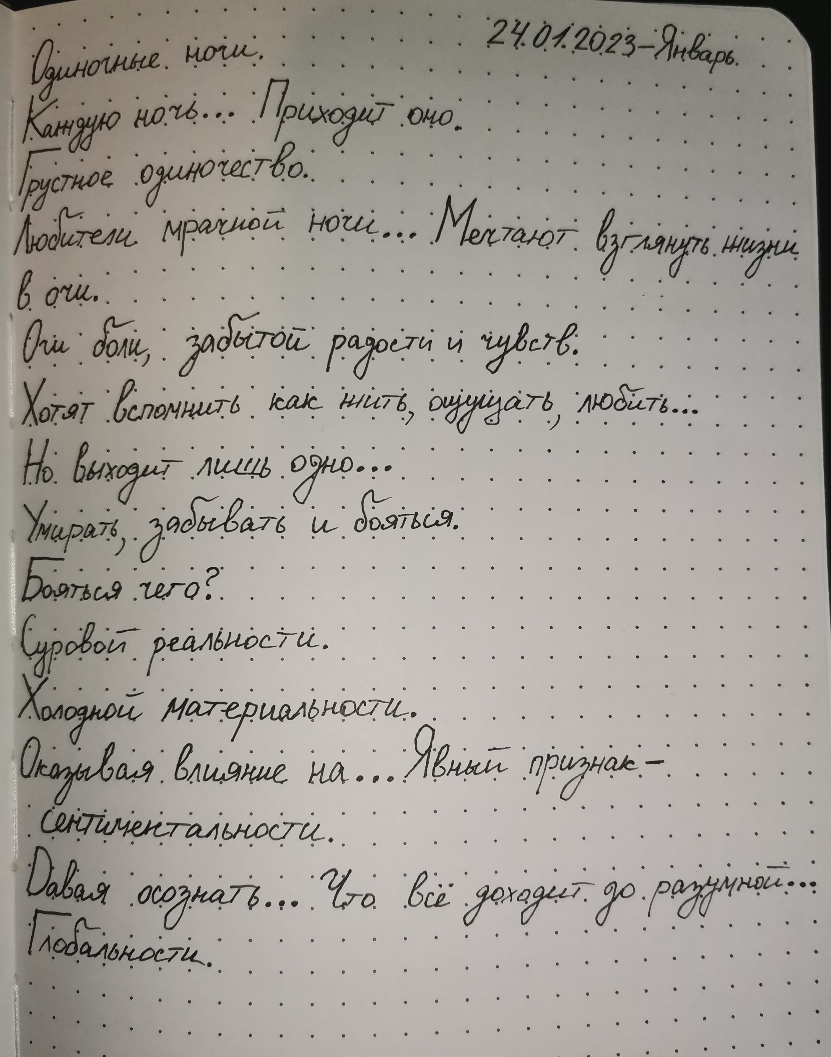 24.01.2023-Январь.
Одиночные ночи.
Каждую ночь... Приходит оно.
Грустное одиночество.
Любители мрачной ночи... Мечтают взглянуть жизни
в очи.
Очи боли, забытой радости и чувств.
Хотят вспомнить как жить, ощущать, любить...
Но выходит лишь одно...
Умирать, забывать и бояться.
Бояться чего?
Суровой реальности.
Холодной материальности.
Оказывая влияние на... Явный признак-
сентиментальности.
Давая осознать... Что всё доходит до разумной...
Глобальности.